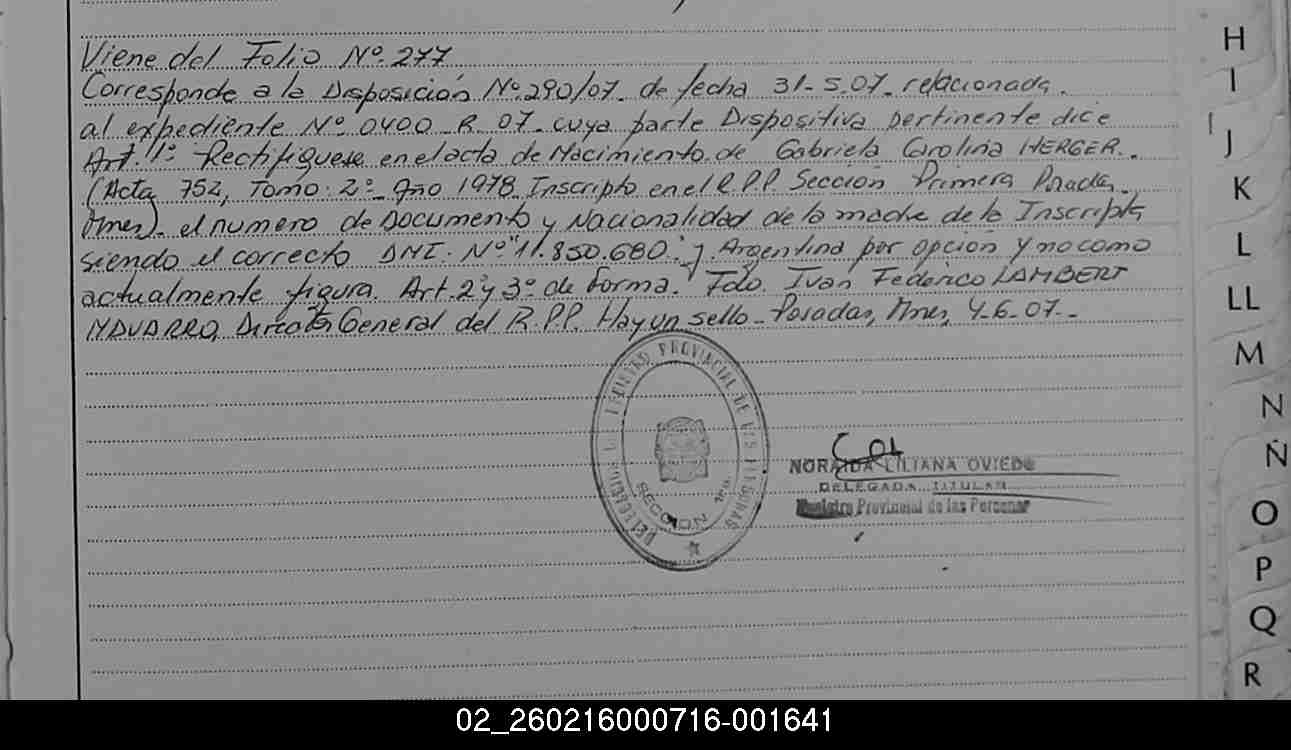 Viene del Folio Nº. 277
Corresponde a la Disposición Nº.290/07. de fecha 31-5-07. relacionada.
al expediente Nº. 0400. R. 07. cuya parte Dispositiva pertinente dice
Art. 1º Rectifiquese en el acta de Nacimiento. de Gabriela Carolina HERGER..
(Acta 752, Tomo: 2º. Año 1978. Inscripto en el R.P.P. Sección Primera Posadas.
Mnes). el numero de Documento y Nacionalidad de la madre de la Inscripta
siendo el correcto DNI. Nº "11.850.680." y Argentina por opción y no como
actualmente figura. Art. 2º y 3º de forma. Fdo. Ivan Federico LAMBERT
NAVARRO, Director General del R.P.P. Hay un sello. Posadas, Mnes, 4-6-07.-
REGISTRO PROVINCIAL DE LAS PERSONAS
SECCION 1ra.
NORAIDA LILIANA OVIEDO
DELEGADA TITULAR
Registro Provincial de las Personas
H
I
J
K
L
LL
M
N
Ñ
O
P
Q
R
02_260216000716-001641